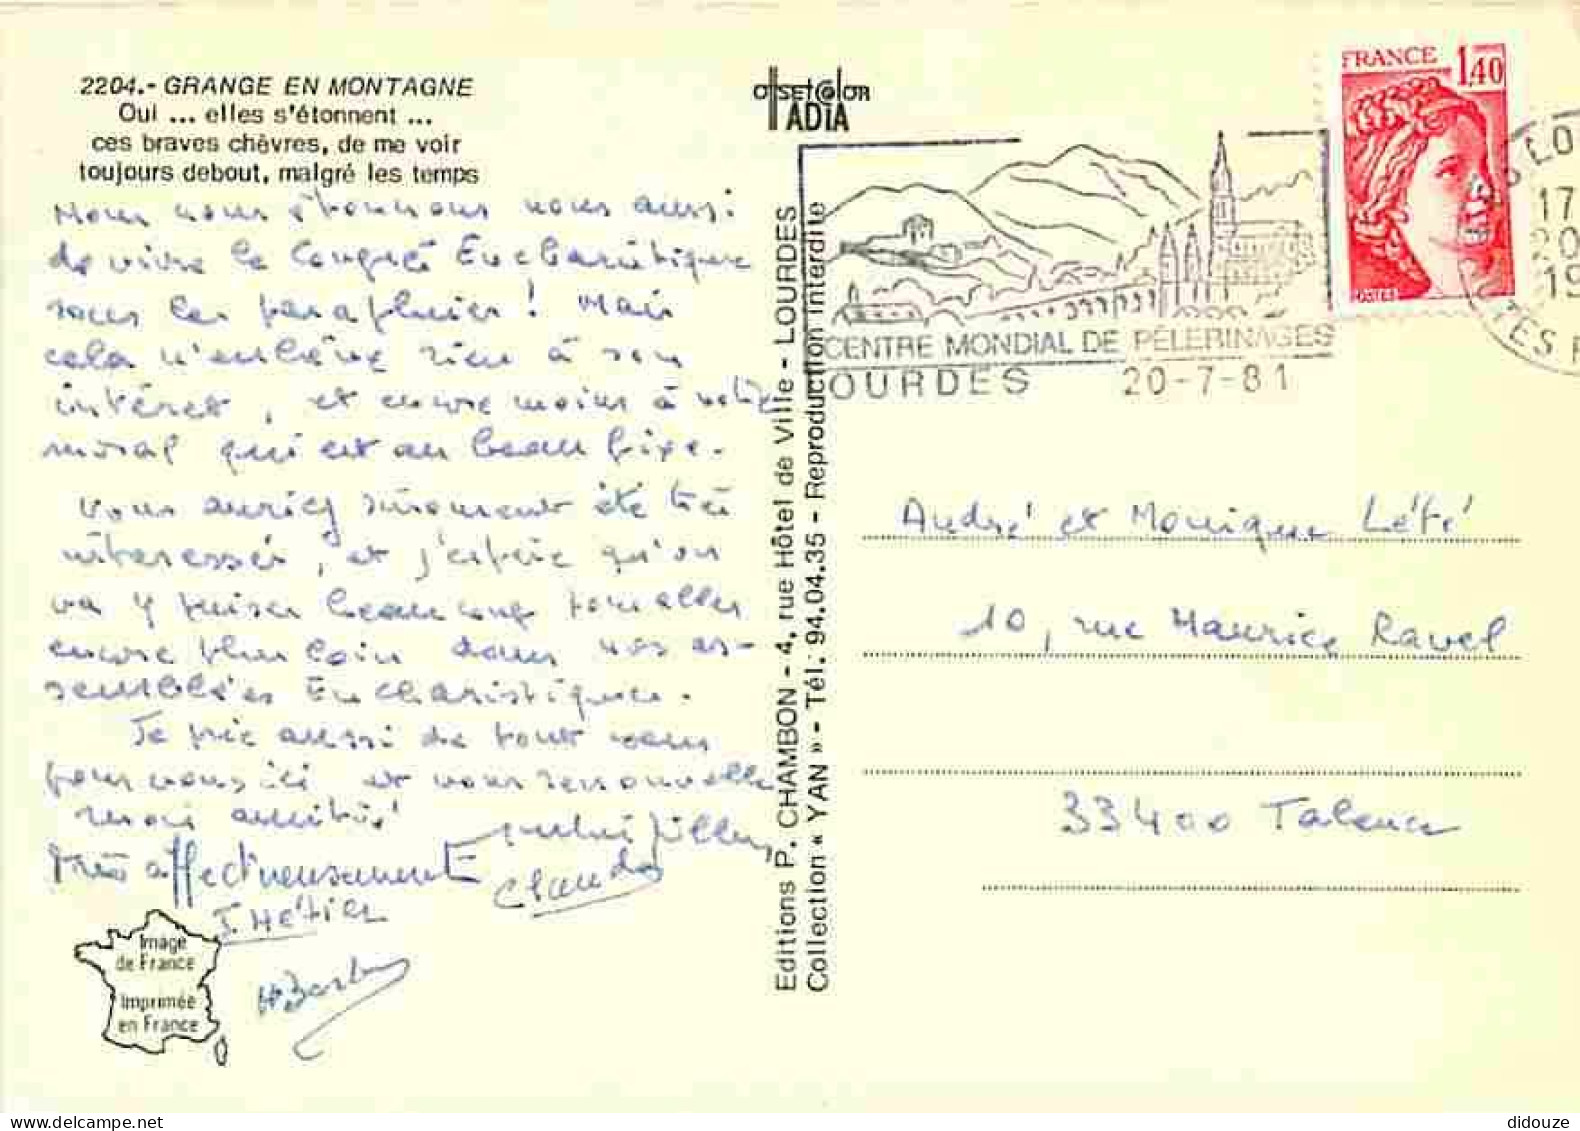 2204.- GRANGE EN MONTAGNE
Oui ... elles s'étonnent ...
ces braves chèvres, de me voir
toujours debout, malgré les temps
Nous nous étonnons nous aussi
de vivre le Congrès Eucharistique
sous les parapluies ! Mais
cela n'enlève rien à son
intérêt, et encore moins à notre
moral qui est au beau fixe.
Vous auriez sûrement été très
intéressés, et j'espère qu'on
va y puiser beaucoup pour aller
encore plus loin dans nos as-
semblées Eucharistiques.
Je prie aussi de tout cœur
pour vous ici et vous renouvelle
mon amitié
Très affectueusement
Claude
J. Hétier
Image
de France
Imprimée
en France
Editions P. CHAMBON - 4, rue Hôtel de Ville - LOURDES
Collection « YAN » - Tél. 94.04.35 - Reproduction interdite
offsetcolor
IADIA
FRANCE 1,40
POSTES
CENTRE MONDIAL DE PÉLERINAGES
LOURDES 20-7-81
17
20
19
André et Monique Lété
10, rue Maurice Ravel
33400 Talence
didouze